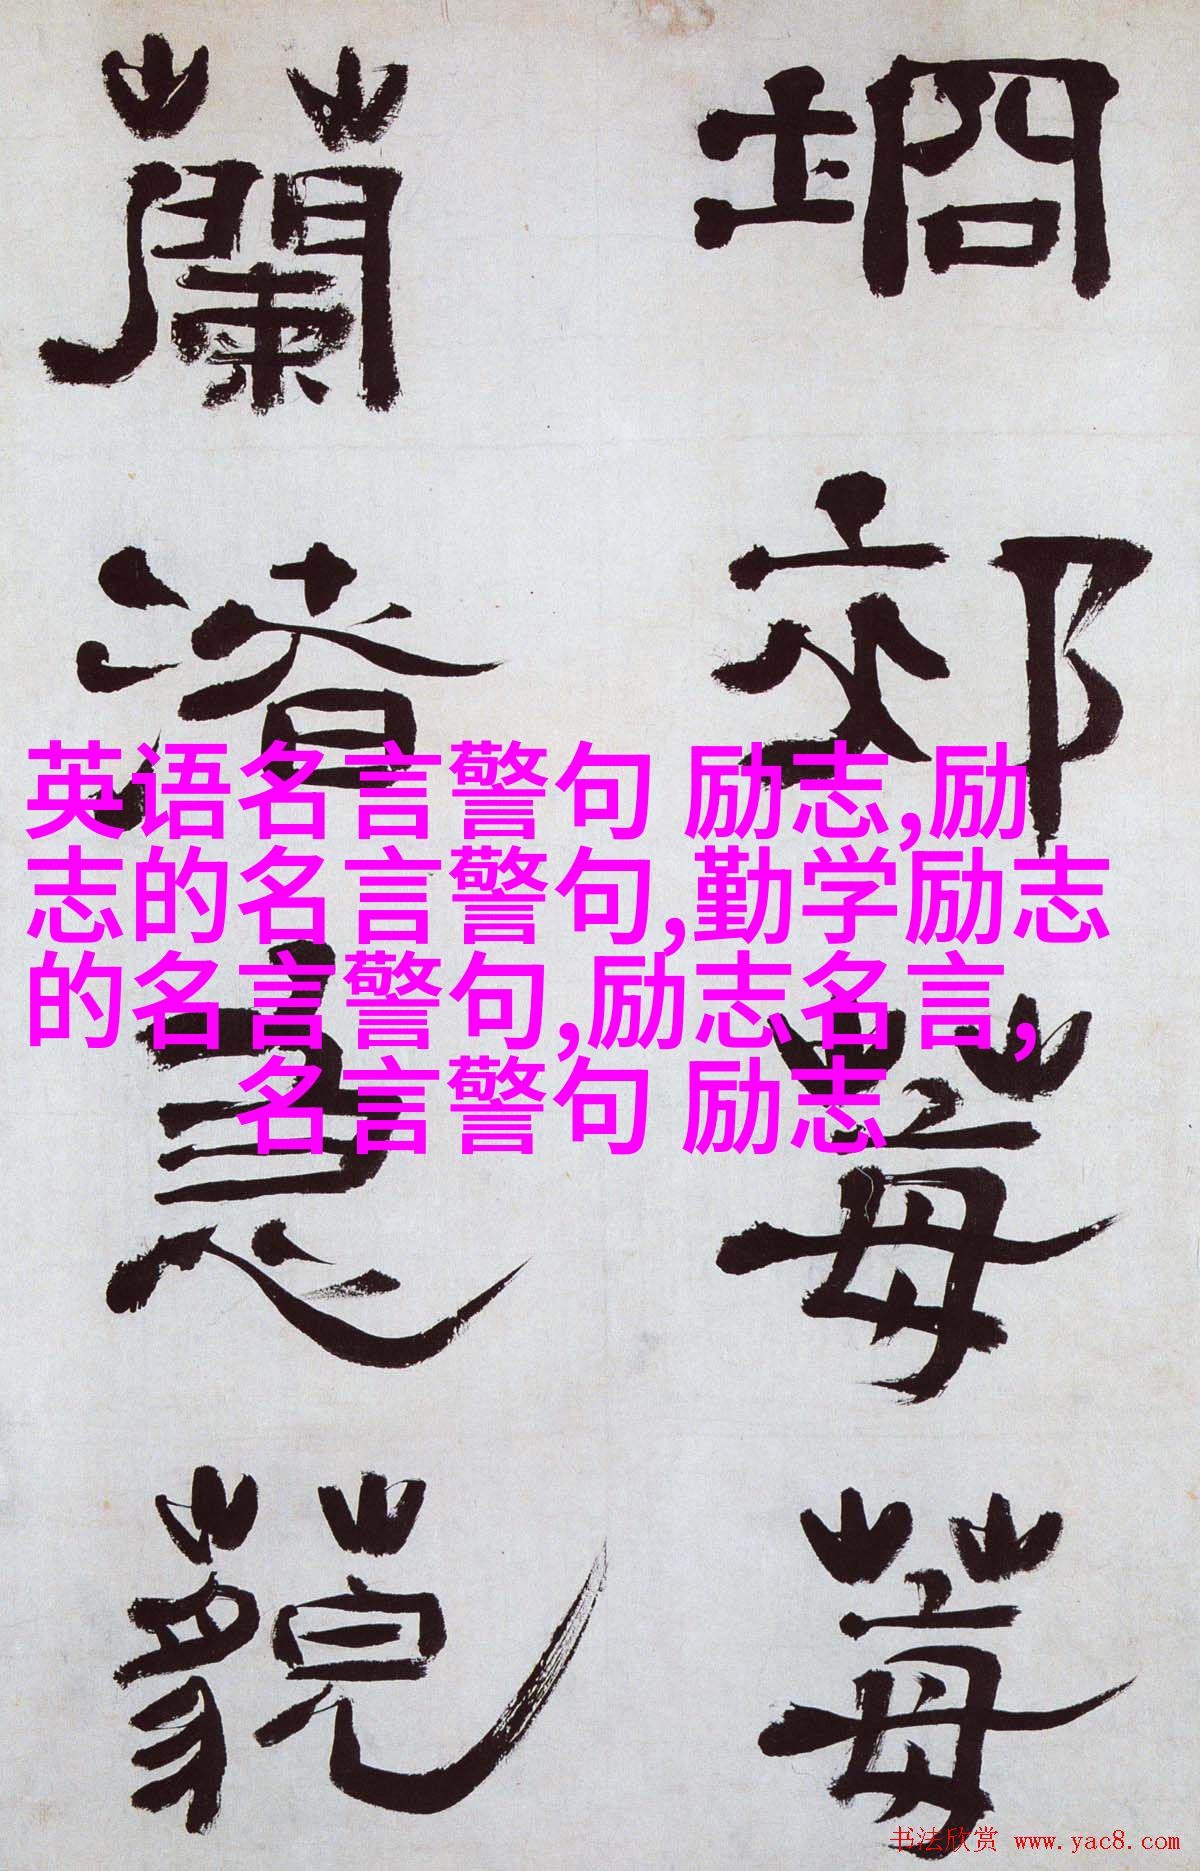 坰郊莓莓
蘭渚急藐
英语名言警句 励志,励
志的名言警句,勤学励志
的名言警句,励志名言,
名言警句 励志
书法欣赏 www.yac8.com